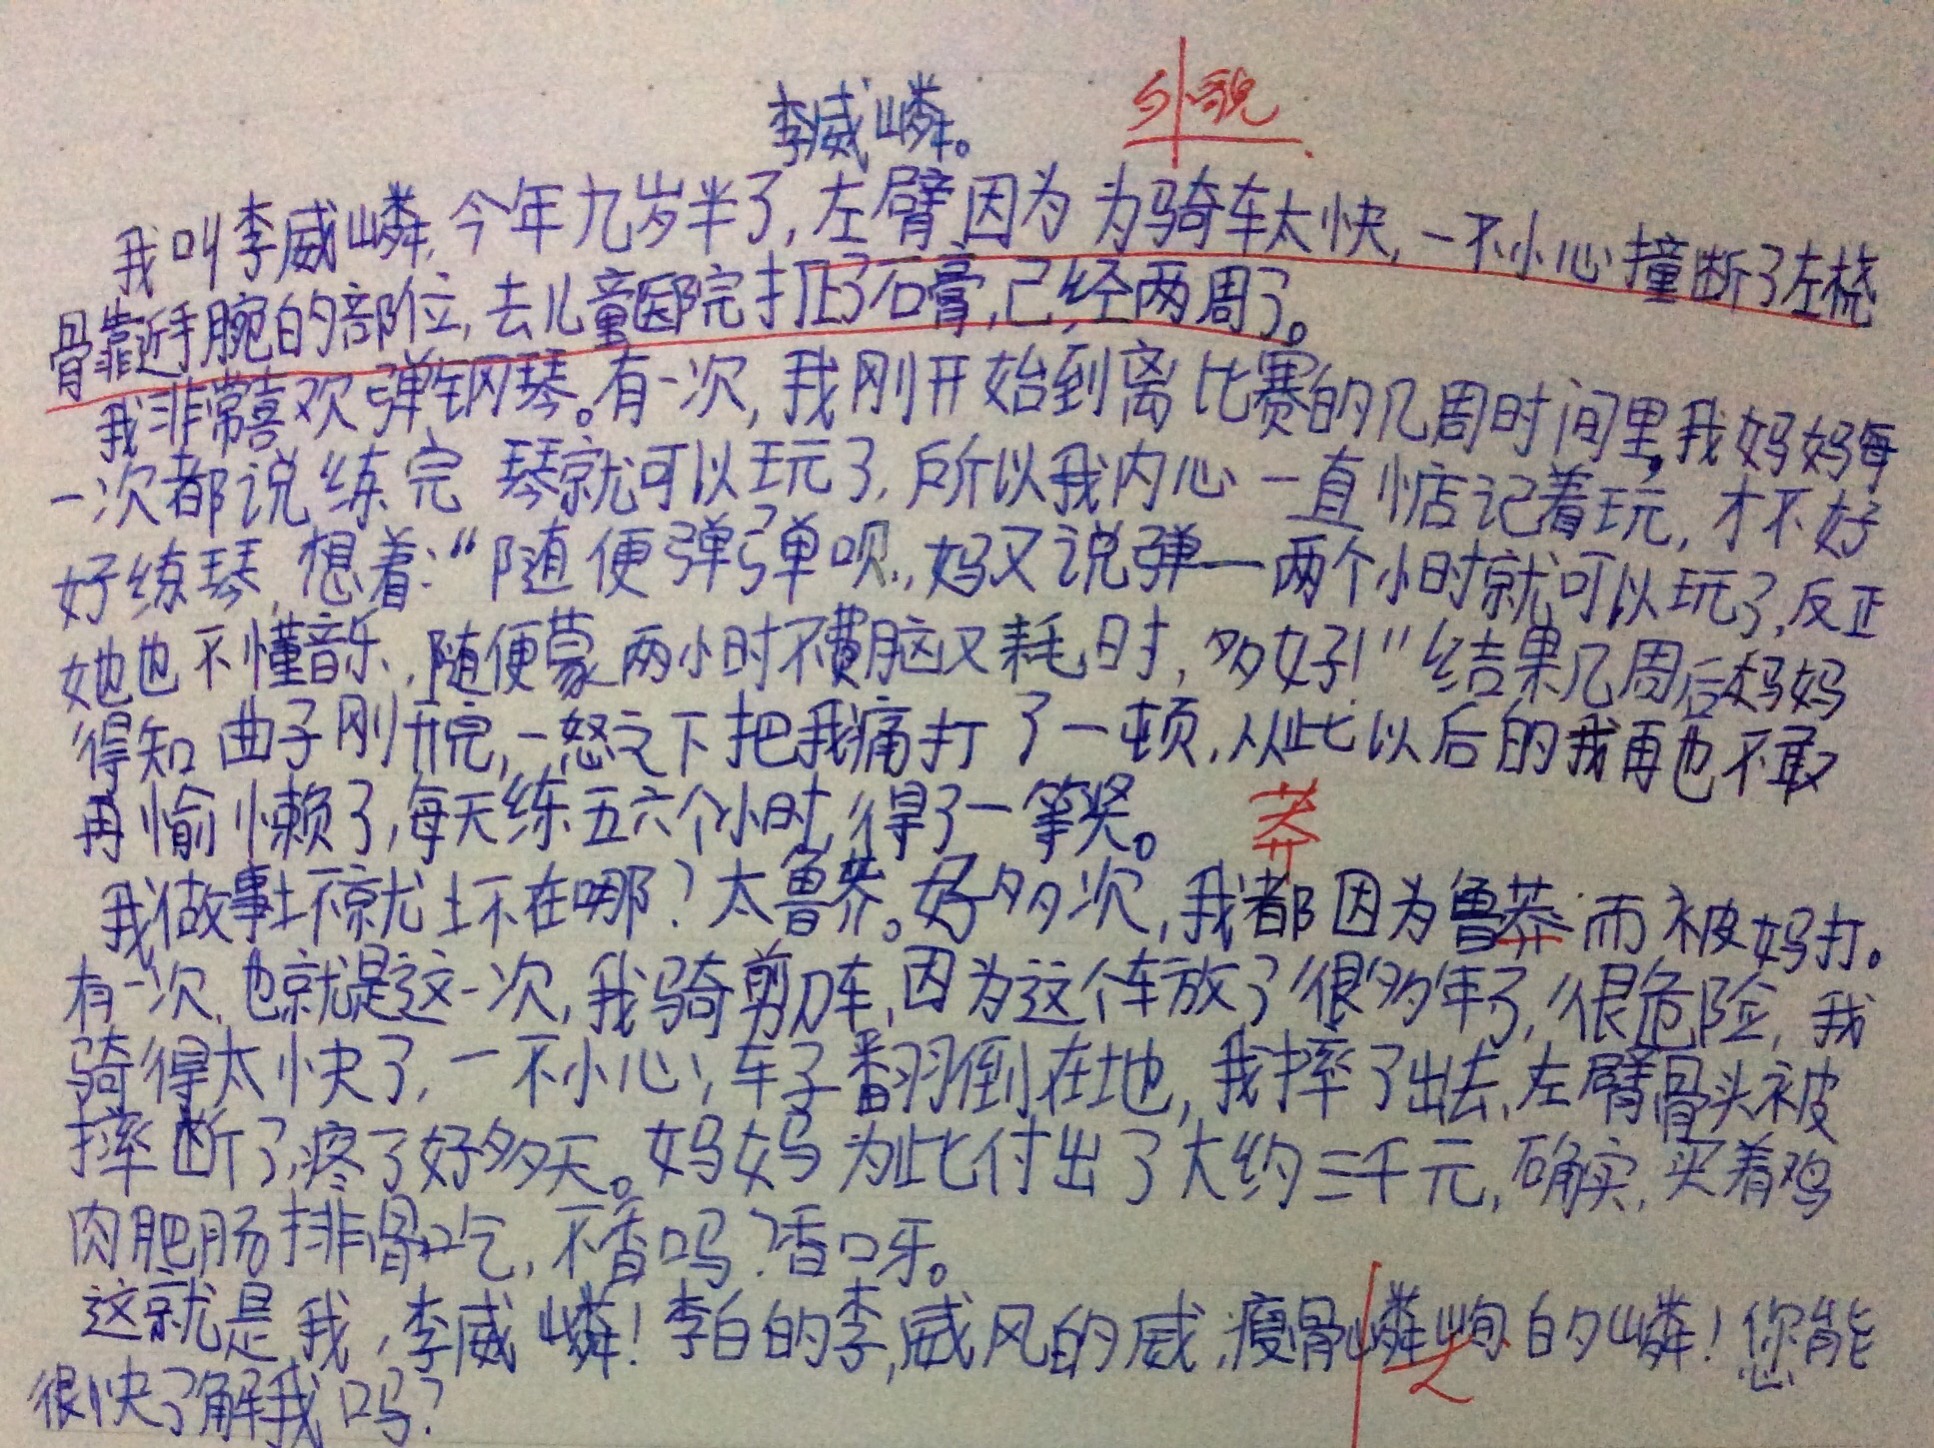 李威嶙。 外貌
我叫李威嶙,今年九岁半了,左臂因为为骑车太快,一不小心撞断了左桡
骨靠近手腕的部位,去儿童医院打了石膏,已经两周了。
我非常喜欢弹钢琴。有一次,我刚开始到离比赛的几周时间里,我妈妈每
一次都说练完琴就可以玩了,所以我内心一直惦记着玩,才不好
好练琴,想着:“随便弹弹呗,妈又说弹一两个小时就可以玩了,反正
她也不懂音乐,随便蒙两小时不费脑又耗时,多好!”结果几周后妈妈
得知曲子刚开完,一怒之下把我痛打了一顿,从此以后的我再也不敢
再愉懒了,每天练五六个小时,得了一等奖。
莽
我做事坏就坏在哪?太鲁莽。好多次,我都因为鲁莽而被妈打。
有一次,也就是这一次,我骑剪刀车,因为这个车放了很多年了,很危险,我
骑得太快了,一不小心,车子翻倒在地,我摔了出去,左臂骨头被
摔断了,疼了好多天。妈妈为此付出了大约三千元,确实,买着鸡
肉肥肠排骨吃,不香吗?香呀。
这就是我,李威嶙!李白的李,威风的威,瘦骨嶙峋白的嶙!您能
很快了解我吗?